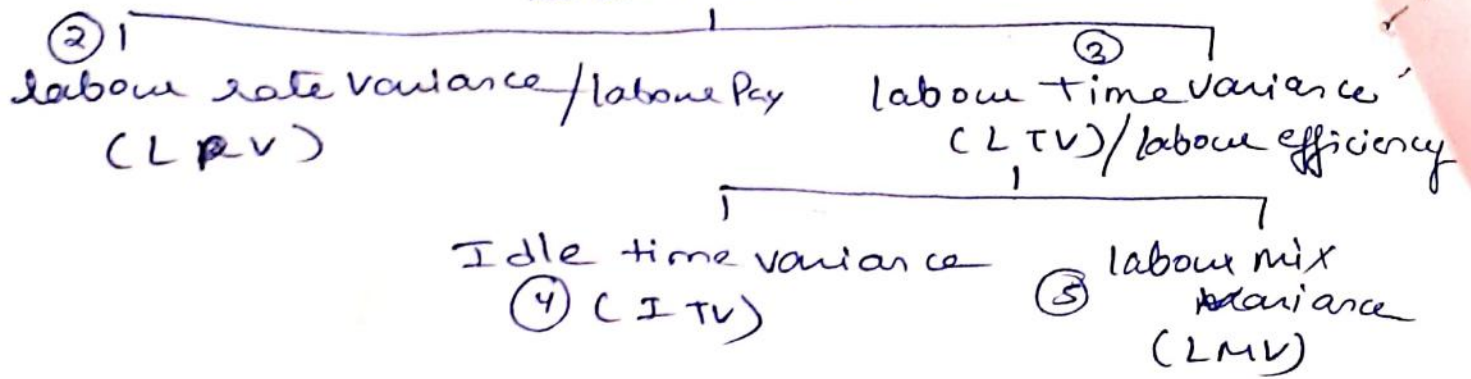 ②
labour rate variance/labour Pay
(LRV)
③
labour time variance
(LTV)/labour efficiency
Idle time variance
④ (ITV)
⑤ labour mix
variance
(LMV)